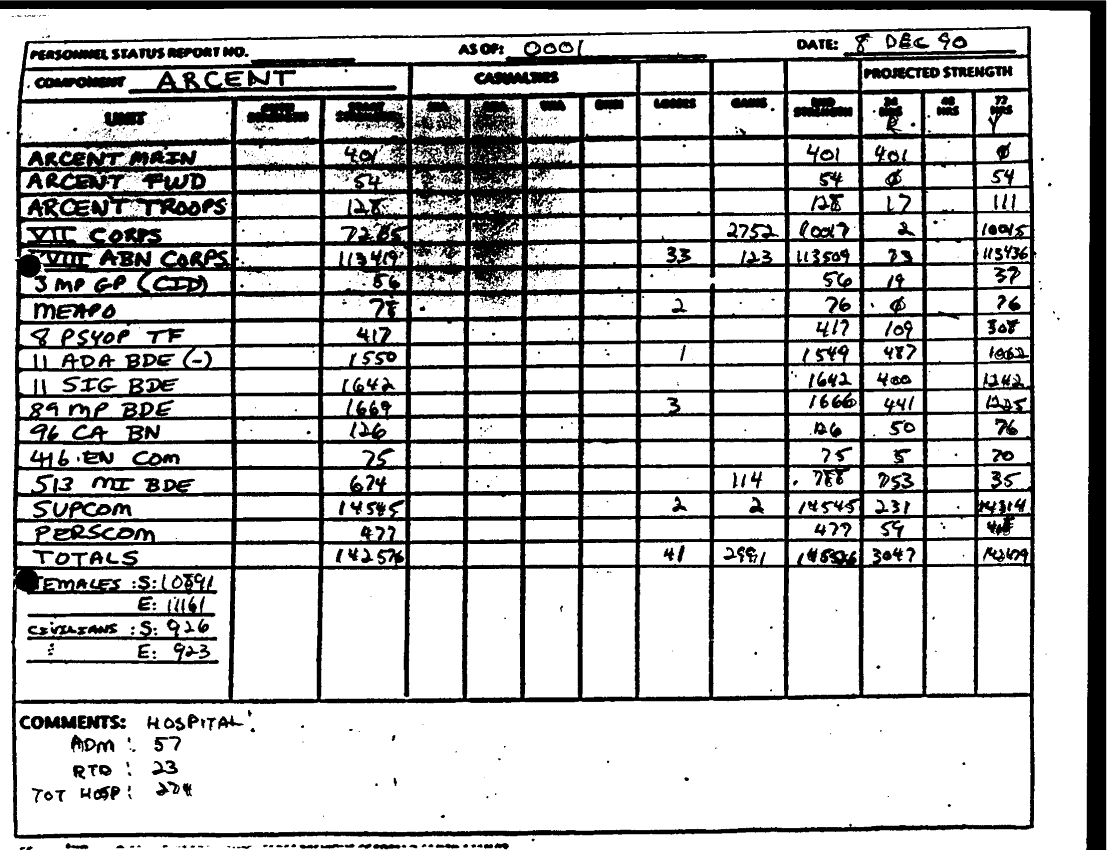 PERSONNEL STATUS REPORT NO. AS OF: 0001 DATE: 8 DEC 90
COMPONENT ARCENT CASUALTIES PROJECTED STRENGTH
UNIT LOSSES GAINS END STRENGTH 24 HRS 48 HRS 72 HRS
R Y
ARCENT MAIN 401 401 401 Ø
ARCENT FWD 54 54 Ø 54
ARCENT TROOPS 128 128 17 111
VII CORPS 2752 2
XVIII ABN CORPS 113419 33 123 113509 73 113436
3 MP GP (CID) 56 56 19 37
MEAPO 78 2 76 Ø 76
8 PSYOP TF 417 417 109 308
11 ADA BDE (-) 1550 1 1549 487 1062
11 SIG BDE 1642 1642 400 1242
89 MP BDE 1669 3 1666 441 1225
96 CA BN 126 126 50 76
416 EN COM 75 75 5 70
513 MI BDE 674 114 788 753 35
SUPCOM 14545 2 2 14545 231 14314
PERSCOM 477 477 59
TOTALS 142576 41 2991 3047 142479
FEMALES :S: 10891
E: 11161
CIVILIANS :S: 926
E: 923
COMMENTS: HOSPITAL:
ADM : 57
RTD : 23
TOT HOSP: